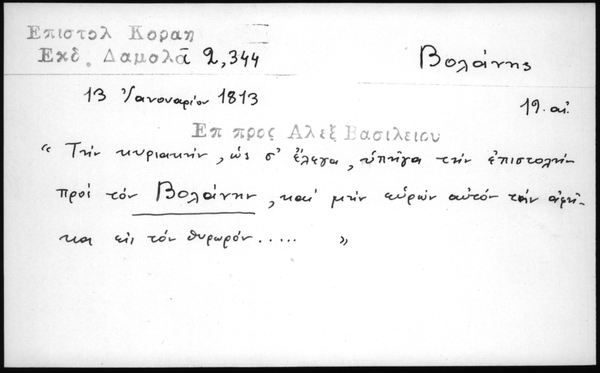 Επιστολ Κοραη
Εκδ. Δαμαλᾶ 2,344
Βολάνης
13 Ἰανουαρίου 1813
19. αἰ.
Επ προς Αλεξ Βασιλειου
“ Τήν κυριακήν, ὡς σ' ἔλεγα, ὑπῆγα τήν ἐπιστολήν
πρός τόν Βολάνην, καί μήν εὑρών αὐτόν τήν ἀφῆ-
κα εἰς τόν θυρωρόν..... ”